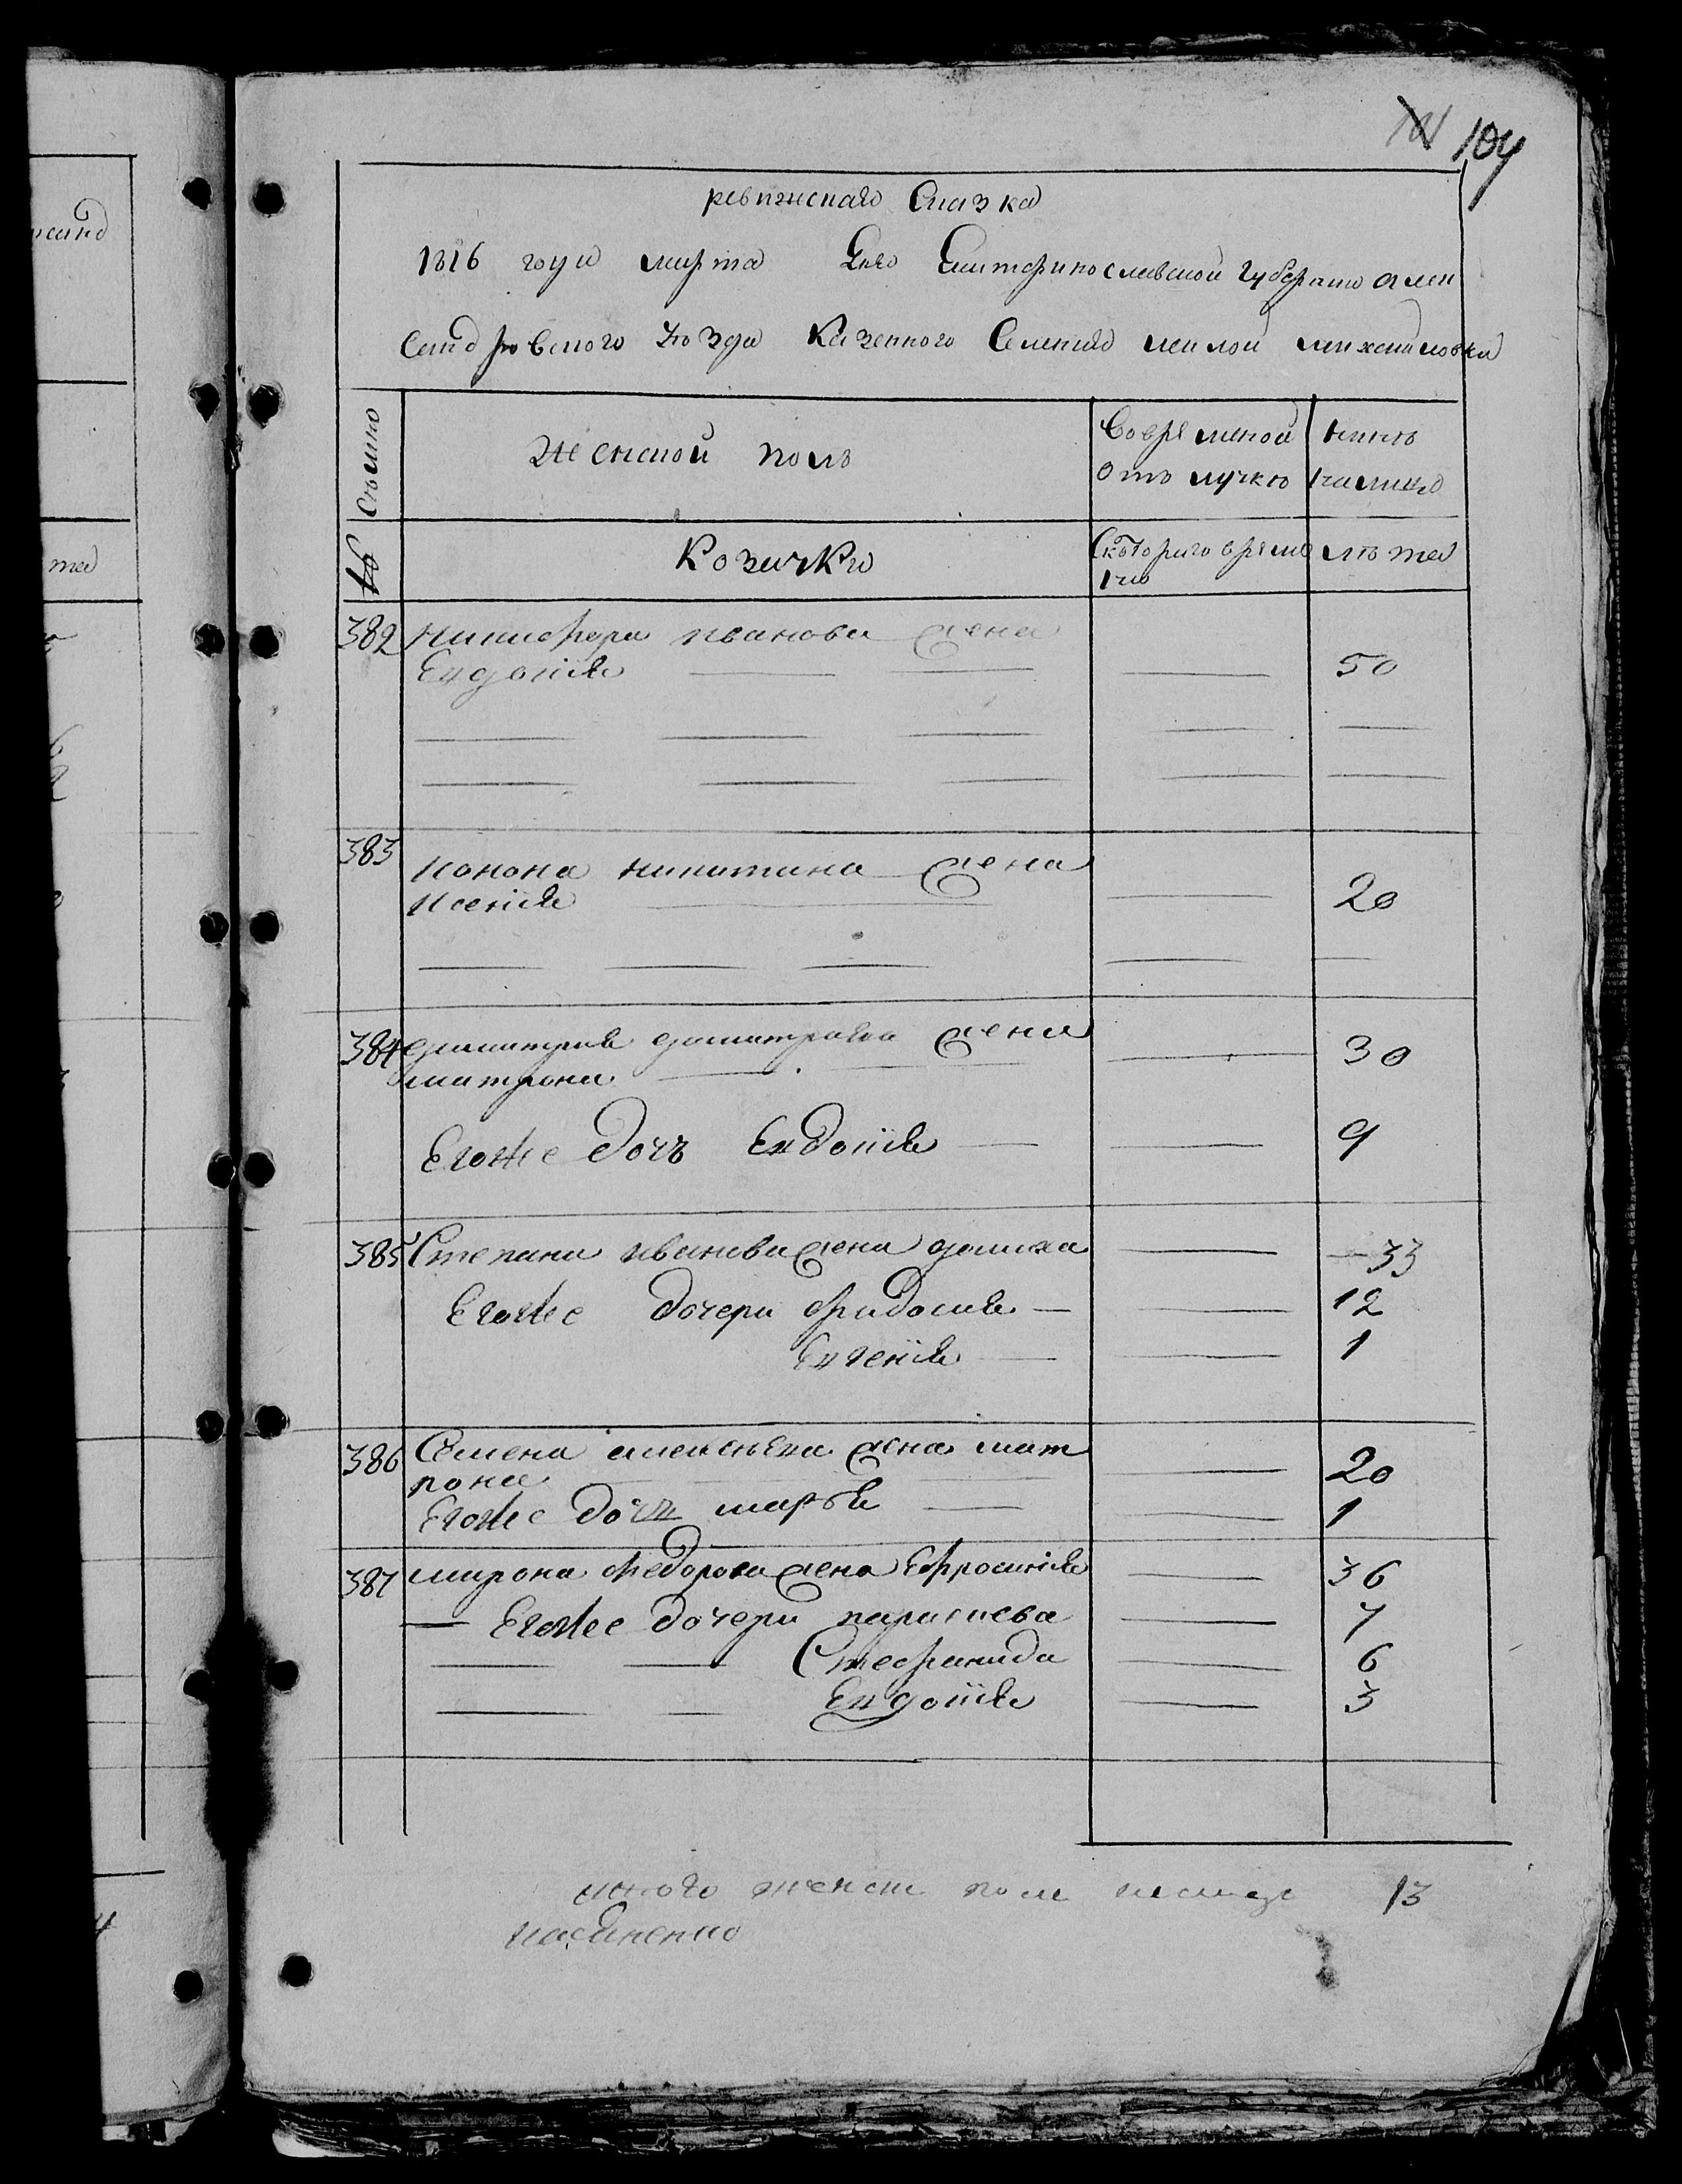 104
ревижская Сказка
1816 года марта Дня Екатеринославской Губернии Алек
сандровского уезда казенного Селения малой михайловки
Семьи
женской полъ
Во временой отъ лучке
ныне на лицо
Козачки
С которого време ни
лѣта
382 никифора иванова жена
Евдокия 50
383 конона никитина жена
ксения 20
384 димитрия димитриева жена
матрона 30
Егоже дочь Евдокия 9
385 Степана иванова жена домаха 33
Егоже дочери фидосия 12
Евгения 1
386 Семена алексеева жена мат
рона 20
Егоже дочь марья 1
387 мирона федорова жена Ефросиния 36
Егоже дочери параскева 7
Стефанида 6
Евдокия 3
итого женска пола на лицо 13